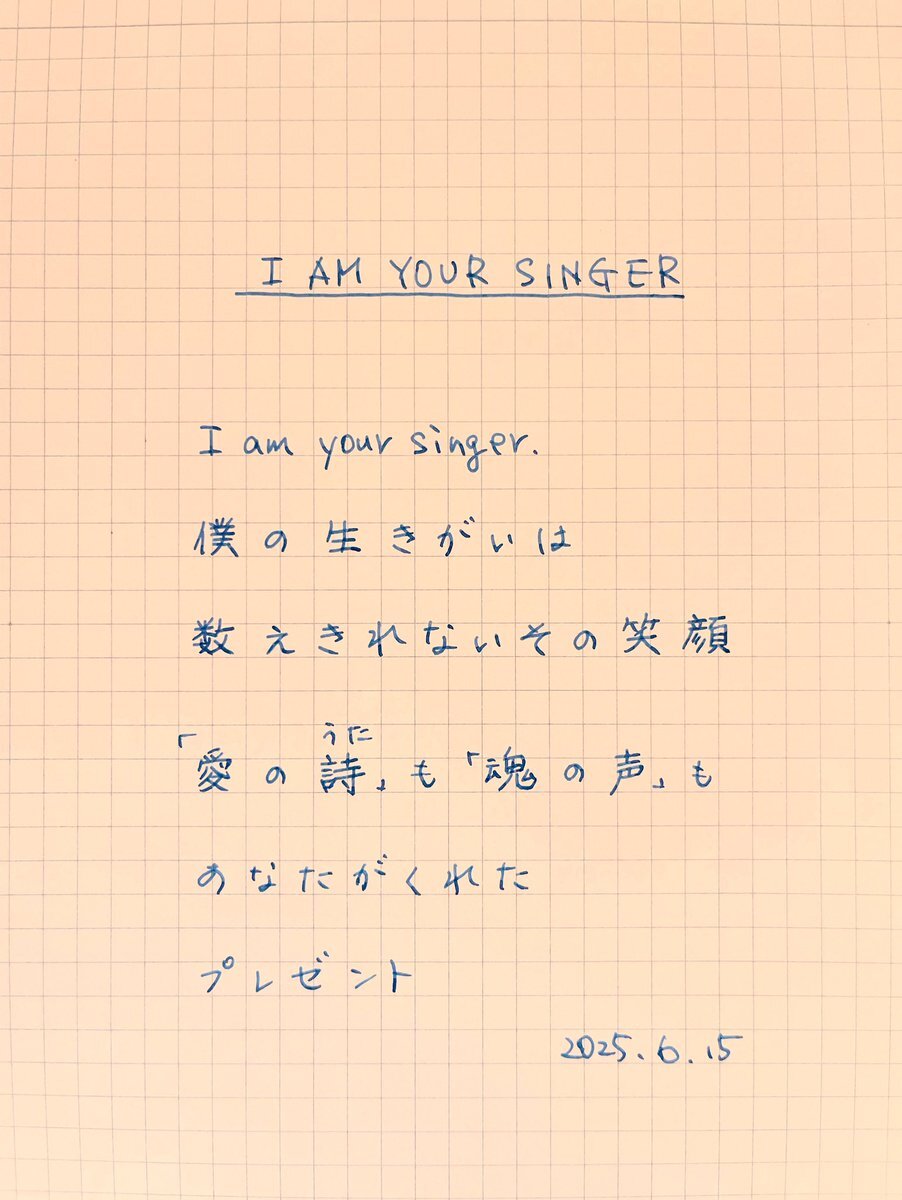 I AM YOUR SINGER
I am your singer.
僕の生きがいは
数えきれないその笑顔
うた
「愛の詩」も「魂の声」も
あなたがくれた
プレゼント
2025.6.15